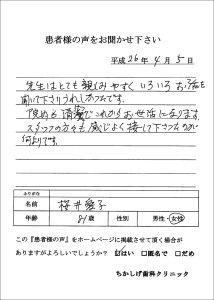 患者様の声をお聞かせ下さい
平成26年4月5日
先生はとても親しみやすく いろいろお話を
聞いて下さりうれしかったです。
院内も清潔でこれからもお世話になります。
スタッフの方々も感じよく接して下さったのが
何よりです。
ふりがな
名前 桜井愛子
年齢 81歳 性別 男性・女性
この『患者様の声』をホームページに掲載させて頂く場合が
ありますがよろしいでしょうか? ☑はい ■匿名で □だめ
ちかしげ歯科クリニック